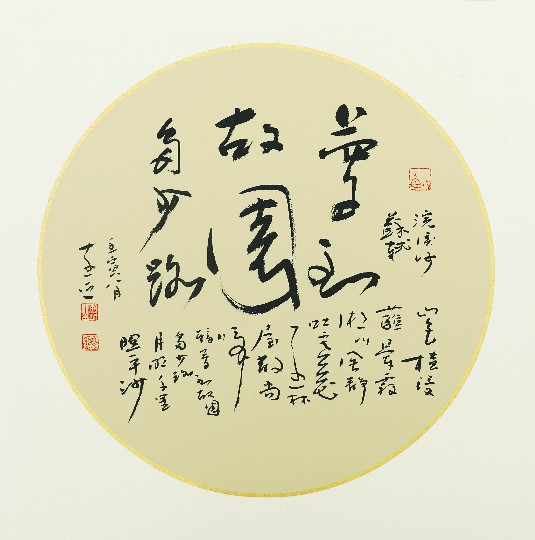 夢到
故園
多少路
浣溪沙
蘇軾
山色橫侵
蘸暈霞
湘川風靜
吐寒花
遠林
屋散尚
啼
鴉夢到故園
多少路
月明千里
照平沙
壬寅八月